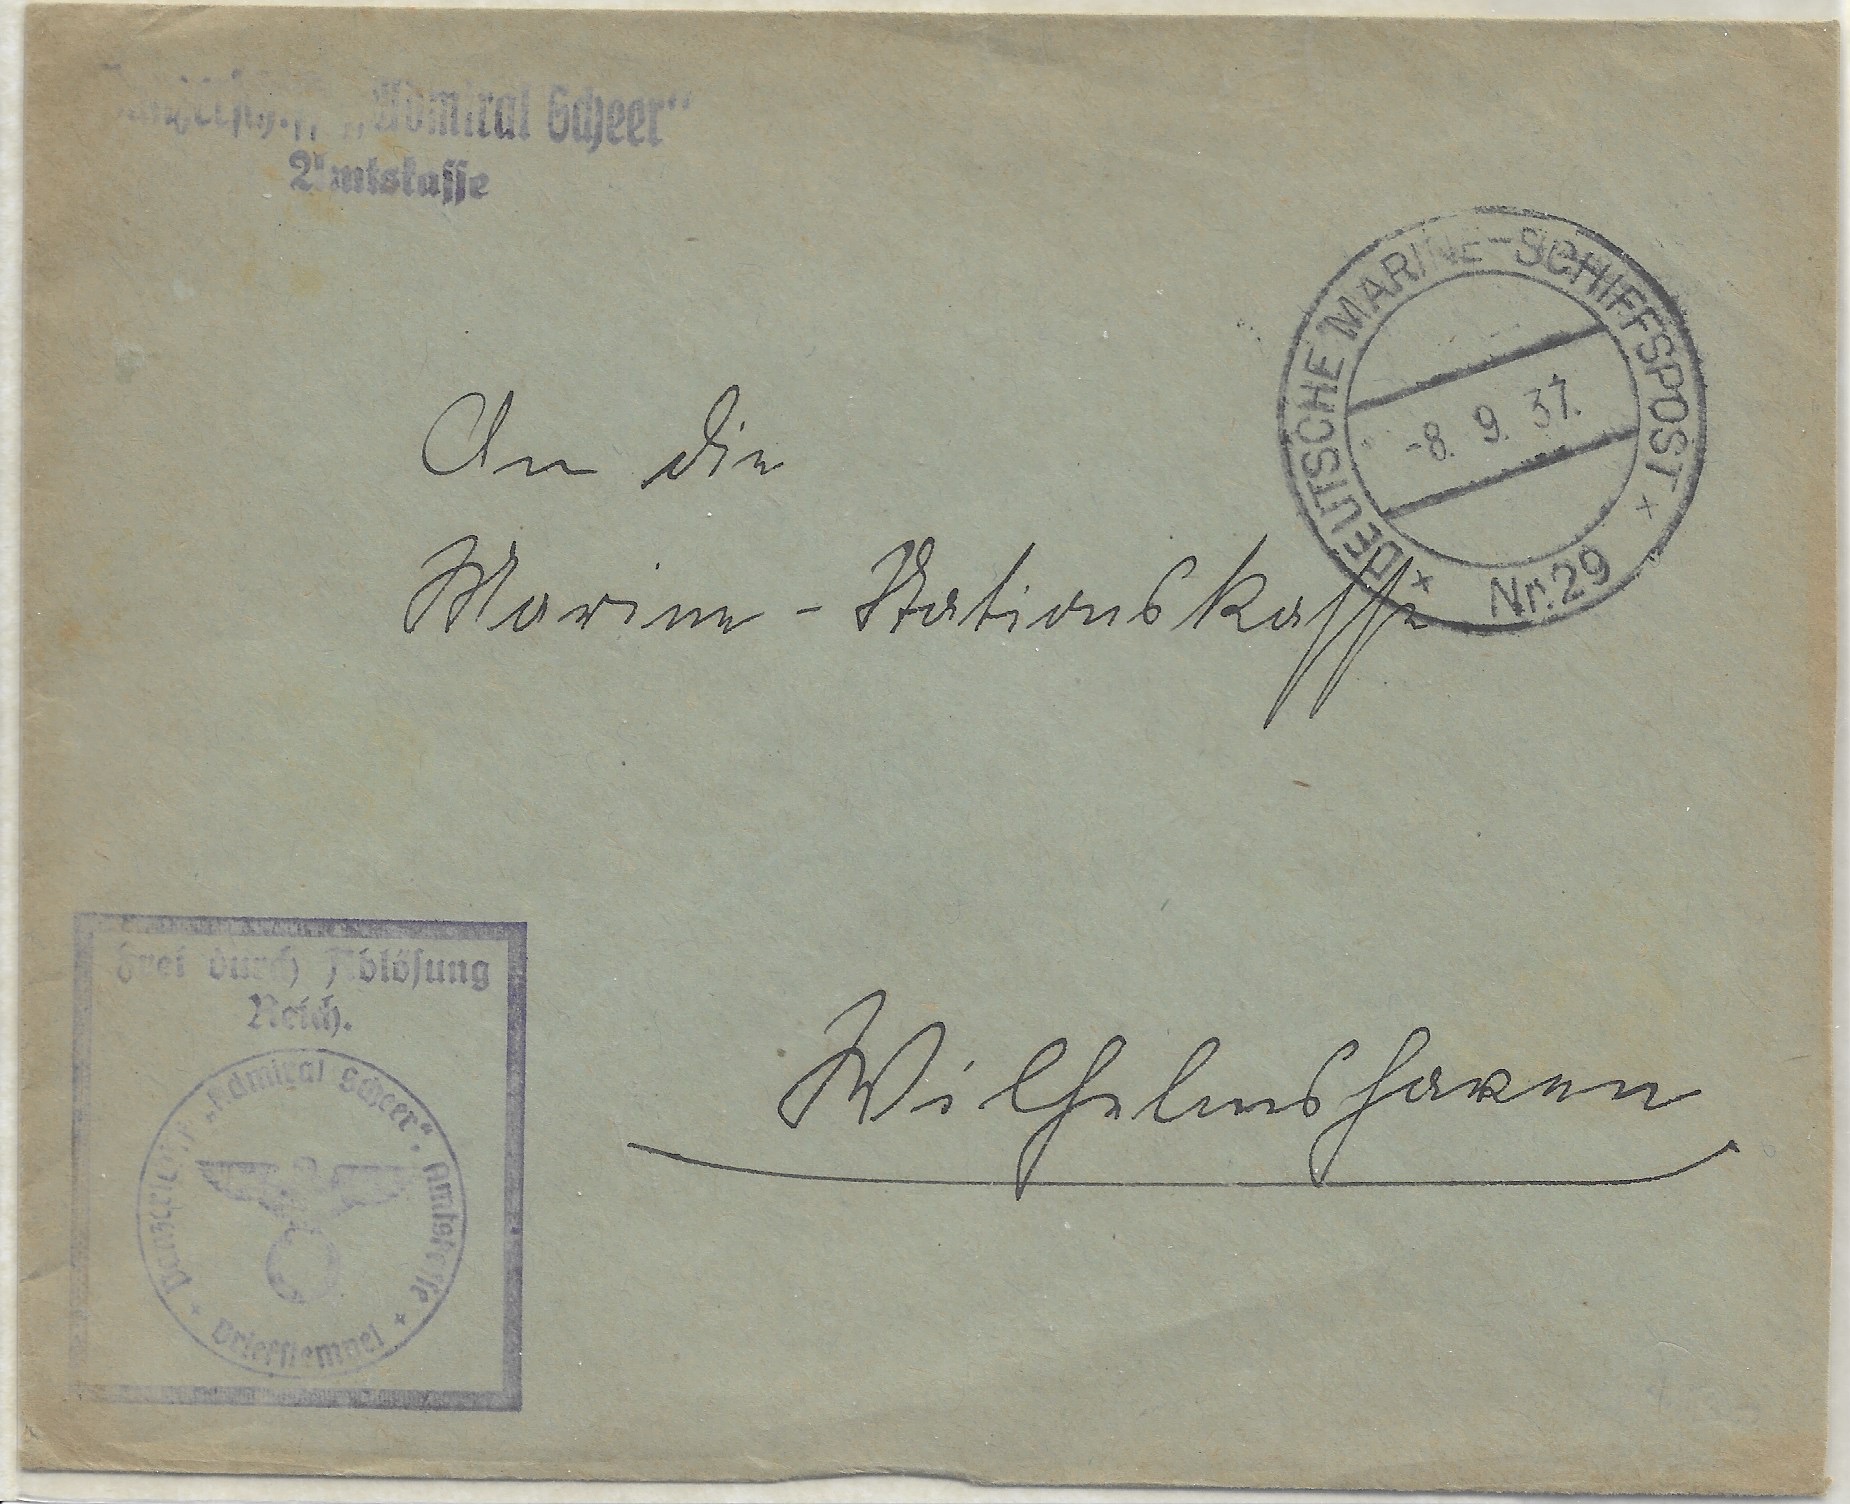 Panzerschiff „Admiral Scheer“
Amtskasse
DEUTSCHE MARINE-SCHIFFSPOST
-8. 9. 37.
Nr. 29
An die
Marine-Stationskasse
Wilhelmshaven
Frei durch Ablösung
Reich.
Panzerschiff „Admiral Scheer“. Amtskasse
Briefstempel